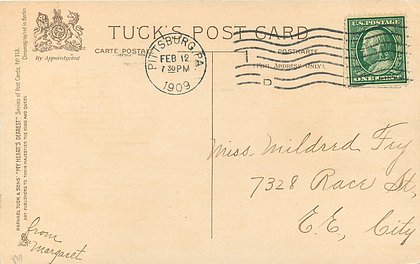 TUCK'S POST CARD
CARTE POSTALE
POSTKARTE
(FOR ADDRESS ONLY).
By Appointment
PITTSBURG, PA.
FEB 12
7 30 PM
1909
1
D
U.S. POSTAGE
ONE
Miss Mildred Fry
7328 Race St,
E.E. City
from
Margaret
RAPHAEL TUCK & SONS' "MY HEART'S DEAREST" Series of Post Cards No. 113
ART PUBLISHERS TO THEIR MAJESTIES THE KING AND QUEEN.
Chromographed in Berlin